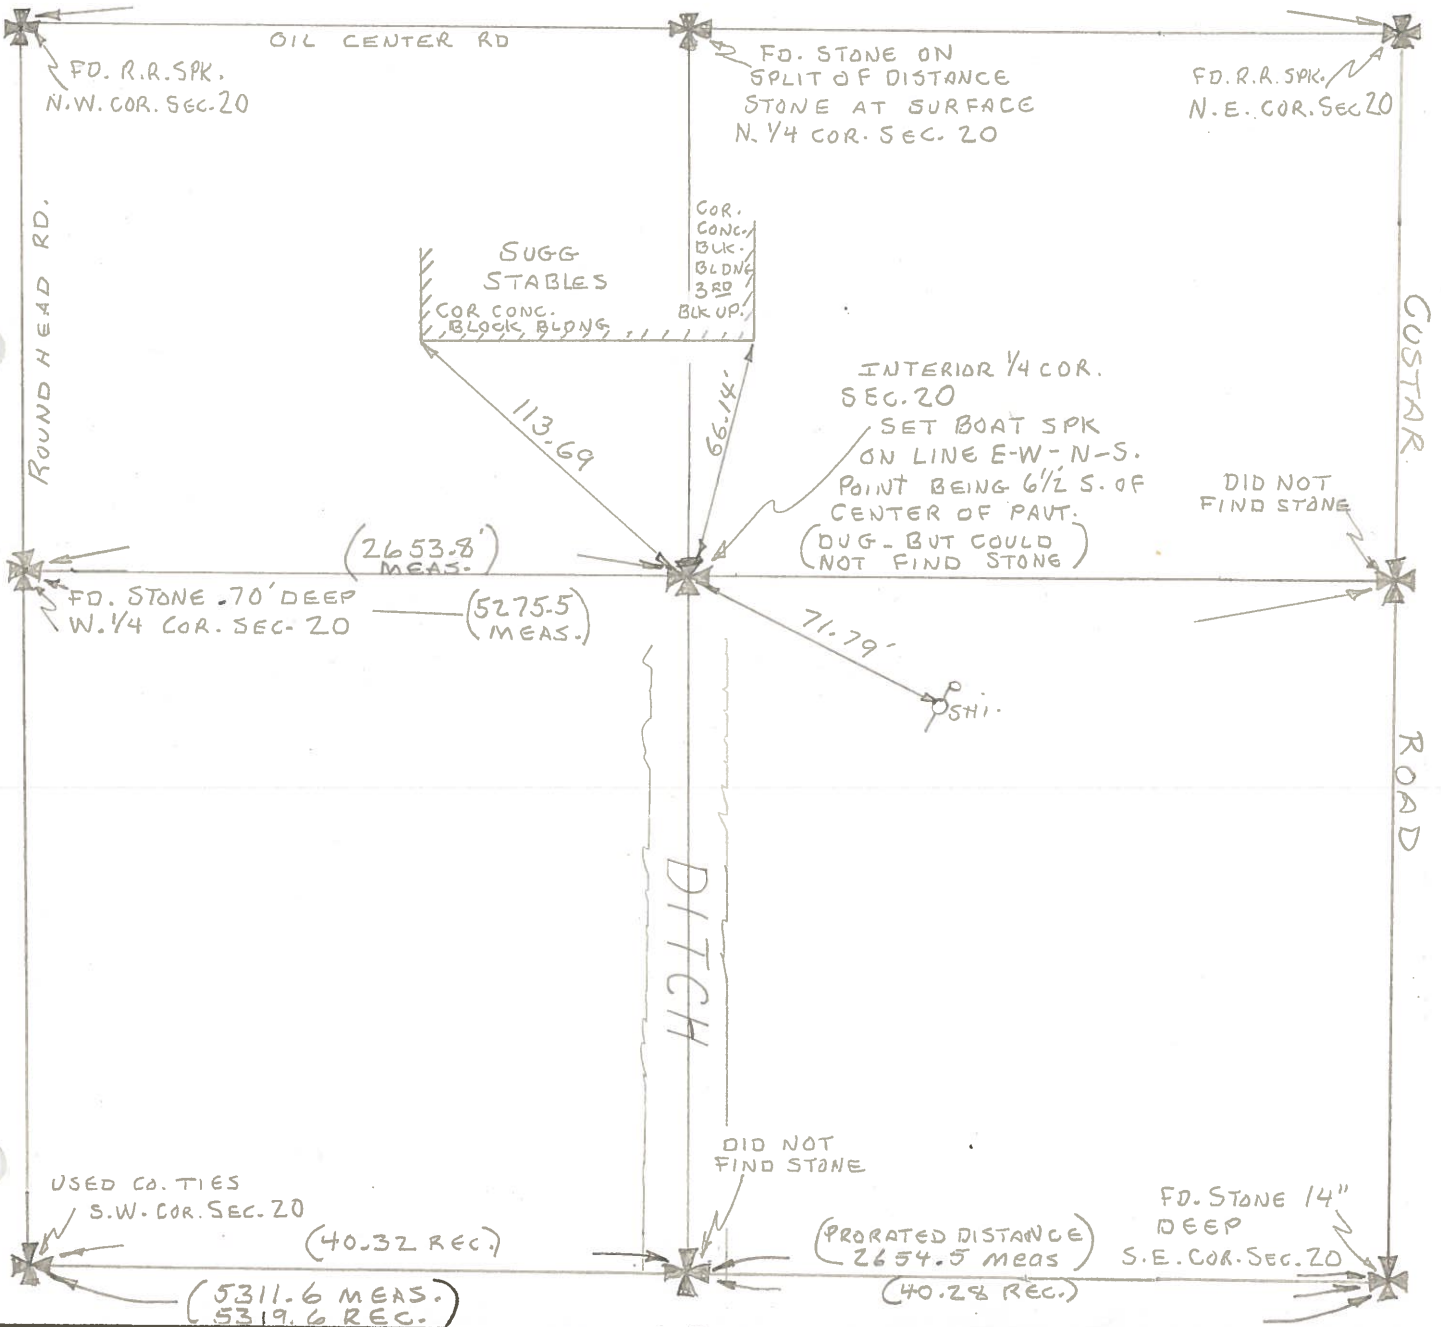 OIL CENTER RD
FD. R.R. SPK.
N.W. COR. SEC. 20
FD. STONE ON
SPLIT OF DISTANCE
STONE AT SURFACE
N. 1/4 COR. SEC. 20
FD. R.R. SPK.
N.E. COR. SEC 20
ROUND HEAD RD.
SUGG
STABLES
COR CONC.
BLOCK BLDNG
COR.
CONC.
BLK.
BLDNG
3RD
BLK UP.
CUSTAR
ROAD
113.69
66.14'
INTERIOR 1/4 COR.
SEC. 20
SET BOAT SPK
ON LINE E-W-N-S.
POINT BEING 6 1/2' S. OF
CENTER OF PAVT.
(DUG - BUT COULD
NOT FIND STONE)
DID NOT
FIND STONE
(2653.8'
MEAS.)
FD. STONE .70' DEEP
W. 1/4 COR. SEC. 20
(5275.5
MEAS.)
71.79'
DITCH
DID NOT
FIND STONE
USED CO. TIES
S.W. COR. SEC. 20
(40.32 REC.)
(5311.6 MEAS.
5319.6 REC.)
(PRORATED DISTANCE
2654.5 meas)
(40.28 REC.)
FD. STONE 14"
DEEP
S.E. COR. SEC. 20